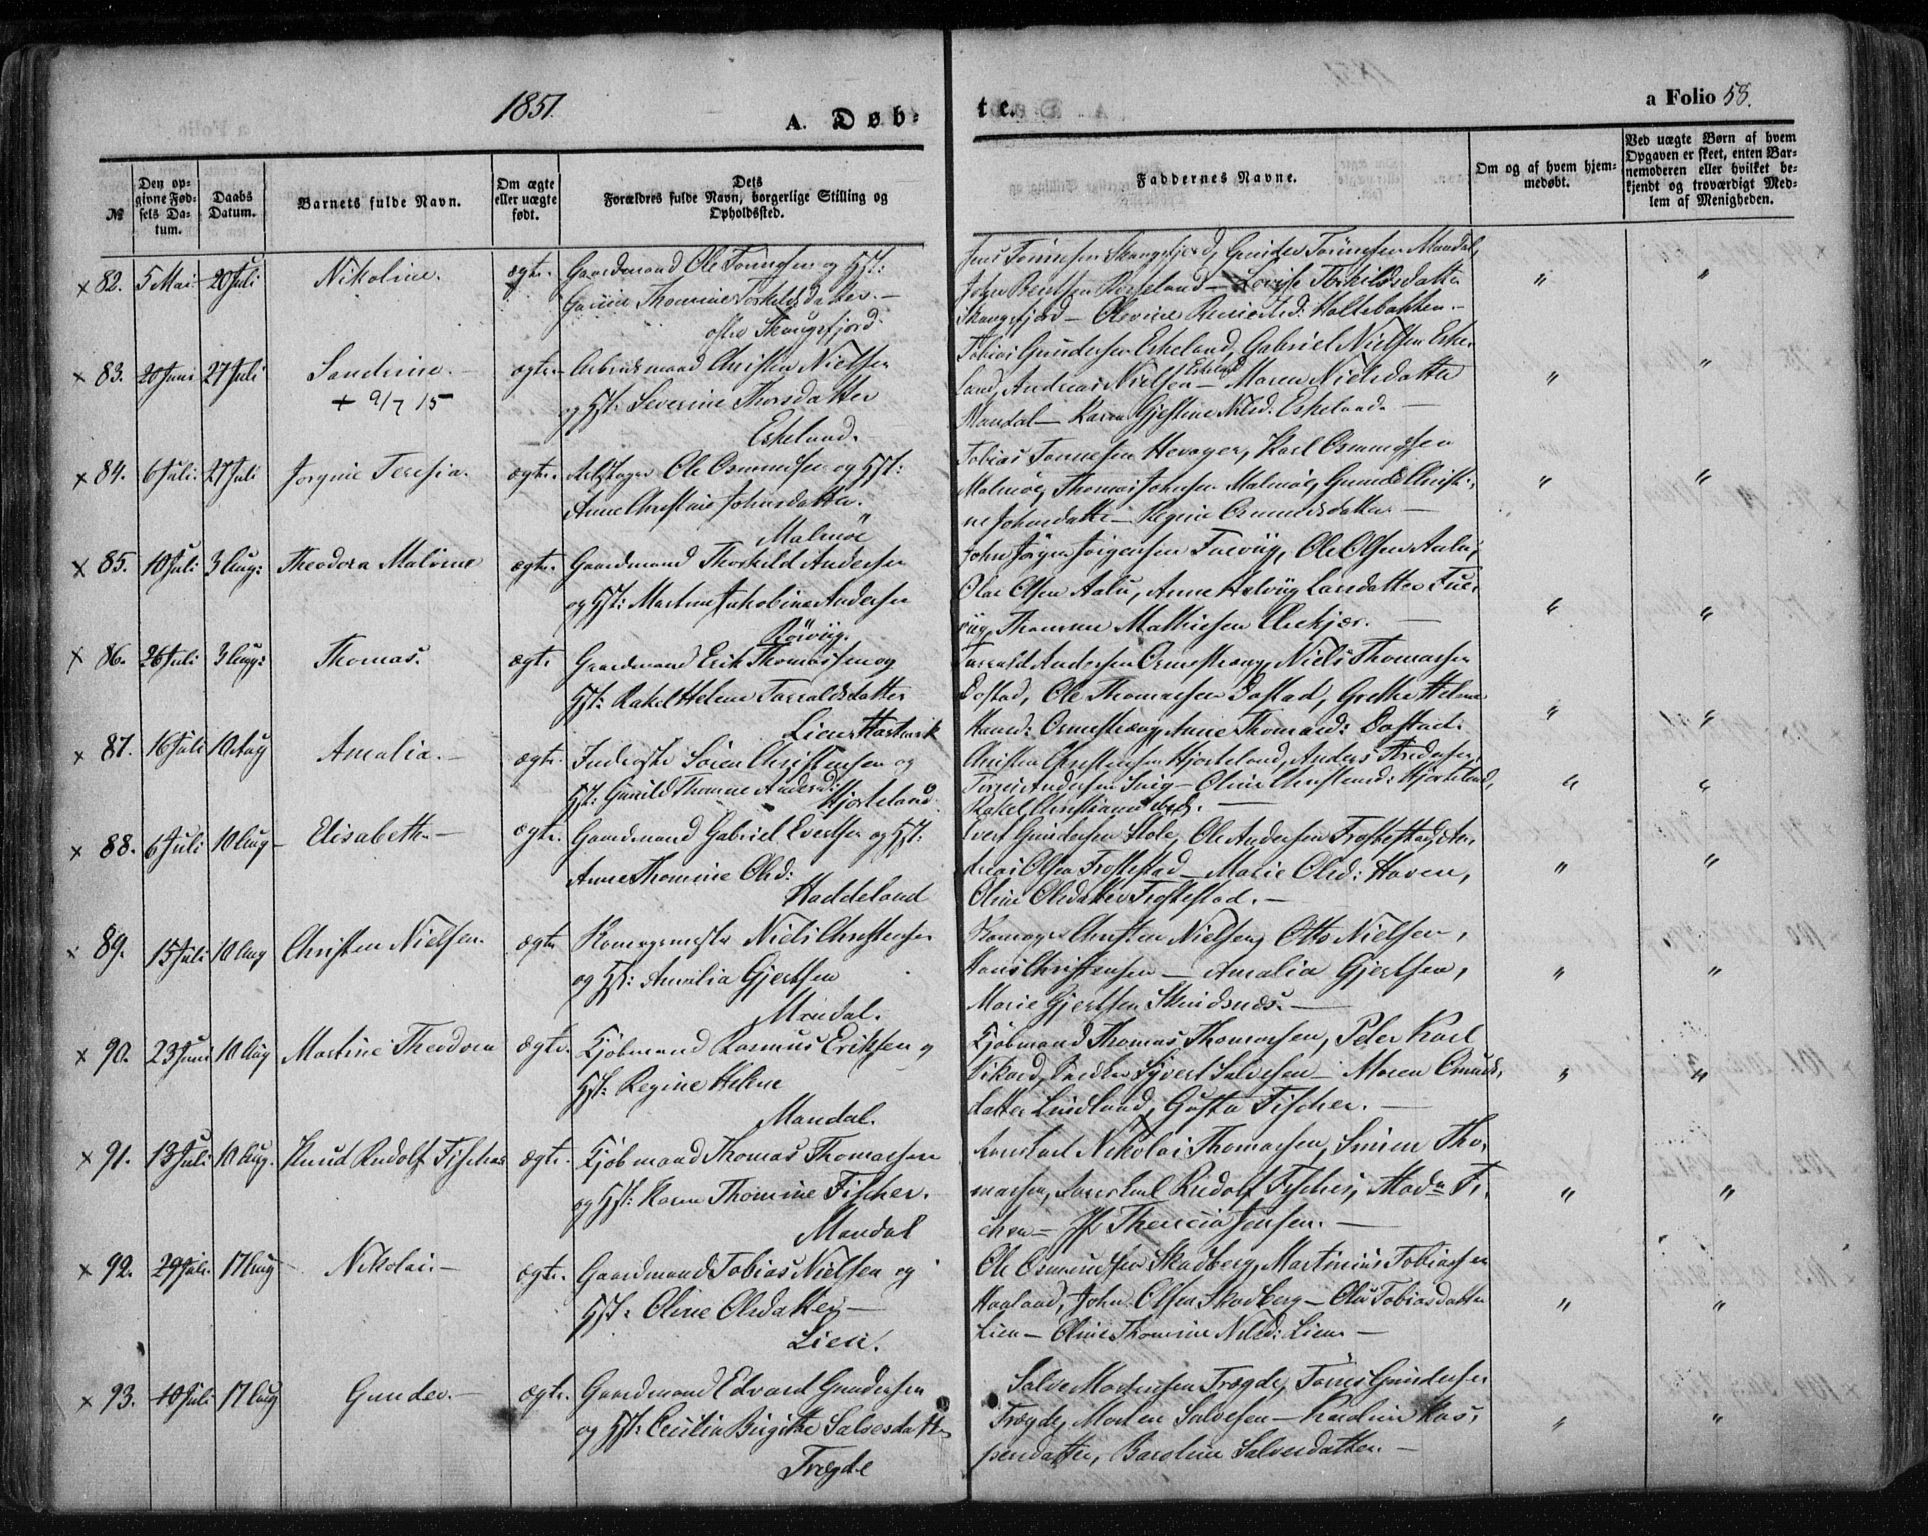 1851.
A. Døb-
te.
a Folio 58.
№
Den op-
givne Fød-
sels Da-
tum.
Daabs
Datum.
Barnets fulde Navn.
Om ægte
eller uægte
født.
Dets
Forældres fulde Navn, borgerlige Stilling og
Opholdssted.
Faddernes Navne.
Om og af hvem hjem-
medøbt.
Ved uægte Børn af hvem
Opgaven er skeet, enten Bar-
nemoderen eller hvilket be-
kjendt og troværdigt Med-
lem af Menigheden.
x 82. 5 Mai 20 Juli Nikoline. ægte. Gaardmand Ole Tønnesen og Hst:
Thomine Torkildsdatter.
Skougsfjord.
Jens Tønnesen Skougsfjord, Gunder Tønnesen Mandal,
John Berntsen - Lovise Thorkildsdatter
Skougsfjord - Olevine Holtebakken. " "
x 83. 20 Juni 27 Juli Sandrine. ægte. Arbeidsmand Christen Nielsen
+ 9/7 15
og Hst: Severine Thorsdatter
Eskeland.
Tobias Gundersen Eskeland, Gabriel Nielsen Eske-
land, Andreas Nielsen Eskeland - Maren Nielsdatter
Mandal - Karen Gjestine Nilsd: Eskeland. " "
x 84. 6 Juli. 27 Juli Jorgine Teresia. ægte. Ole Osmundsen og Hst:
Anne Christine Johnsdatter.
Malmøe
Tobias Tønnesen Hevager, Karl Osmundsen
Malmøe, Thomas Johnsen Malmøe, Gunild Christi-
ne Johnsdatter - Regine Osmundsdatter " "
x 85. 10 Juli 3 Aug: Theodora Malvine ægte. Gaardmand Thorkild Andersen
og Hst: Martine Jakobine Andersen
Rørvig.
John Jørgen Jørgensen Tuevig, Ole Olsen Aalu,
Olai Olsen Aalu, Anne Helvig Larsdatter Tue-
vig, Thomine Mathiesen " "
x 86. 26 Juli 3 Aug: Thomas. ægte Gaardmand Erik Thomassen og
Hst: Rakel Helene Tarraldsdatter
Lien Hartmark
Tarrald Andersen Ormestrang, Niels Thomassen
Dostad, Ole Thomassen Dostad, Grethe Helene
Ormestrang, Anne Thomasd: Dostad. " "
x 87. 16 Juli 10 Aug Amalia. ægte. Inderste Sören Christensen og
Hst: Gunild Thomine Andersd: Hjorteland.
Christen Christensen Hjorteland, Anders
Andersen - Oline Christensd: Hjorteland,
Rakel " "
x 88. 6 Juli 10 Aug Elisabeth. ægte. Gaardmand Gabriel Evertsen og Hst:
Anne Thomine Olsd:
Haddeland
Evert Gundersen Stole, Ole Andersen Frostestad, An-
dreas Olsen Frostestad - Marie Olsd: Haven,
Oline Olsdatter Frostestad. " "
89. 15 Juli 10 Aug Christen Nielsen. ægte. Niels Christensen
og Hst: Amalia Gjertsen
Mandal.
Christen Nielsen, Otto Nielsen,
Hans Christensen - Amalia Gjertsen,
Marie Gjertsen Skindsnæs. " "
x 90. 23 Juni 10 Aug Martine Theodora ægte. Kjøbmand Rasmus Eriksen og
Hst: Regine Helene
Mandal.
Kjøbmand Thomas Thomassen, Peter Karl
Sivert Salvesen - Maren Omunds-
datter Lindland, Gusta Fischer. " "
x 91. 13 Juli 10 Aug. Knud Rudolf Fischer ægte. Kjøbmand Thomas Thomassen
og Hst: Karen Thomine Fischer.
Mandal
Nikolai Thomassen, Tho-
massen, Rudolf Fischer, Mad. Fi-
scher - Theresia Jensen. " "
x 92. 29 Juli. 17 Aug Nikolai. ægte. Gaardmand Tobias Nielsen og
Hst: Oline Olsdatter
Lien.
Ole Osmundsen Skadberg, Martinius Tobiassen
Haaland, John Olsen Skadberg - Tobiasdatter
Lien - Oline Thomine Nilsd: Lien " "
x 93. 10 Juli 17 Aug Gunder. ægte. Gaardmand Edvard Gundersen
og Hst: Cecilia Birgitte Salvesdatter
Trægde
Salve Mortensen Trægde, Tønnes Gundersen
Trægde, Morten Salvesen - Karoline Kas-
persdatter, Baroline Salvesdatter. " "